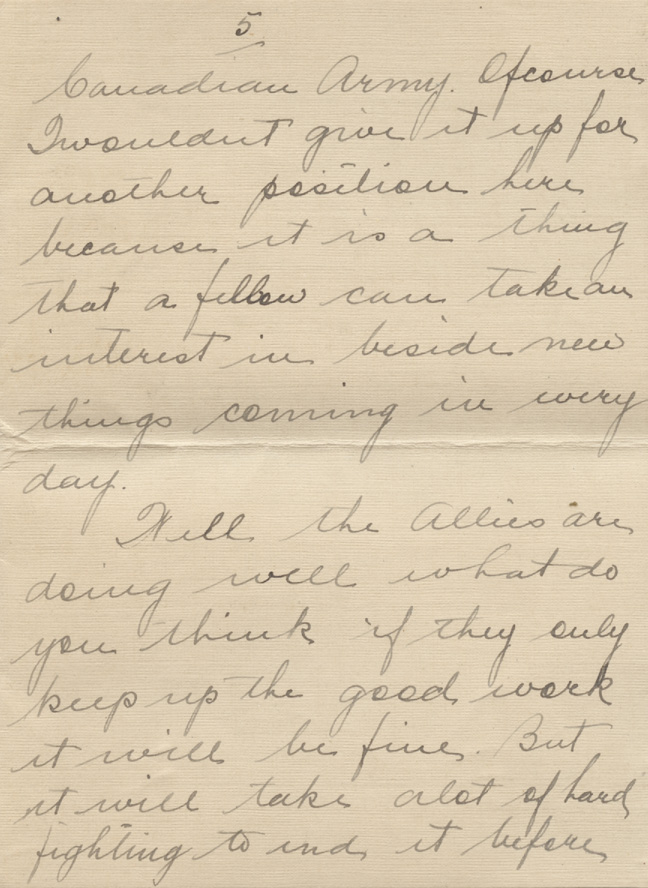 5
Canadian Army. Ofcourse
I wouldnt give it up for
another position here
because it is a thing
that a fellow can take an
interest in beside new
things coming in every
day.
Well the Allies are
doing well what do
you think if they only
keep up the good work
it will be fine. But
it will take alot of hard
fighting to end it before